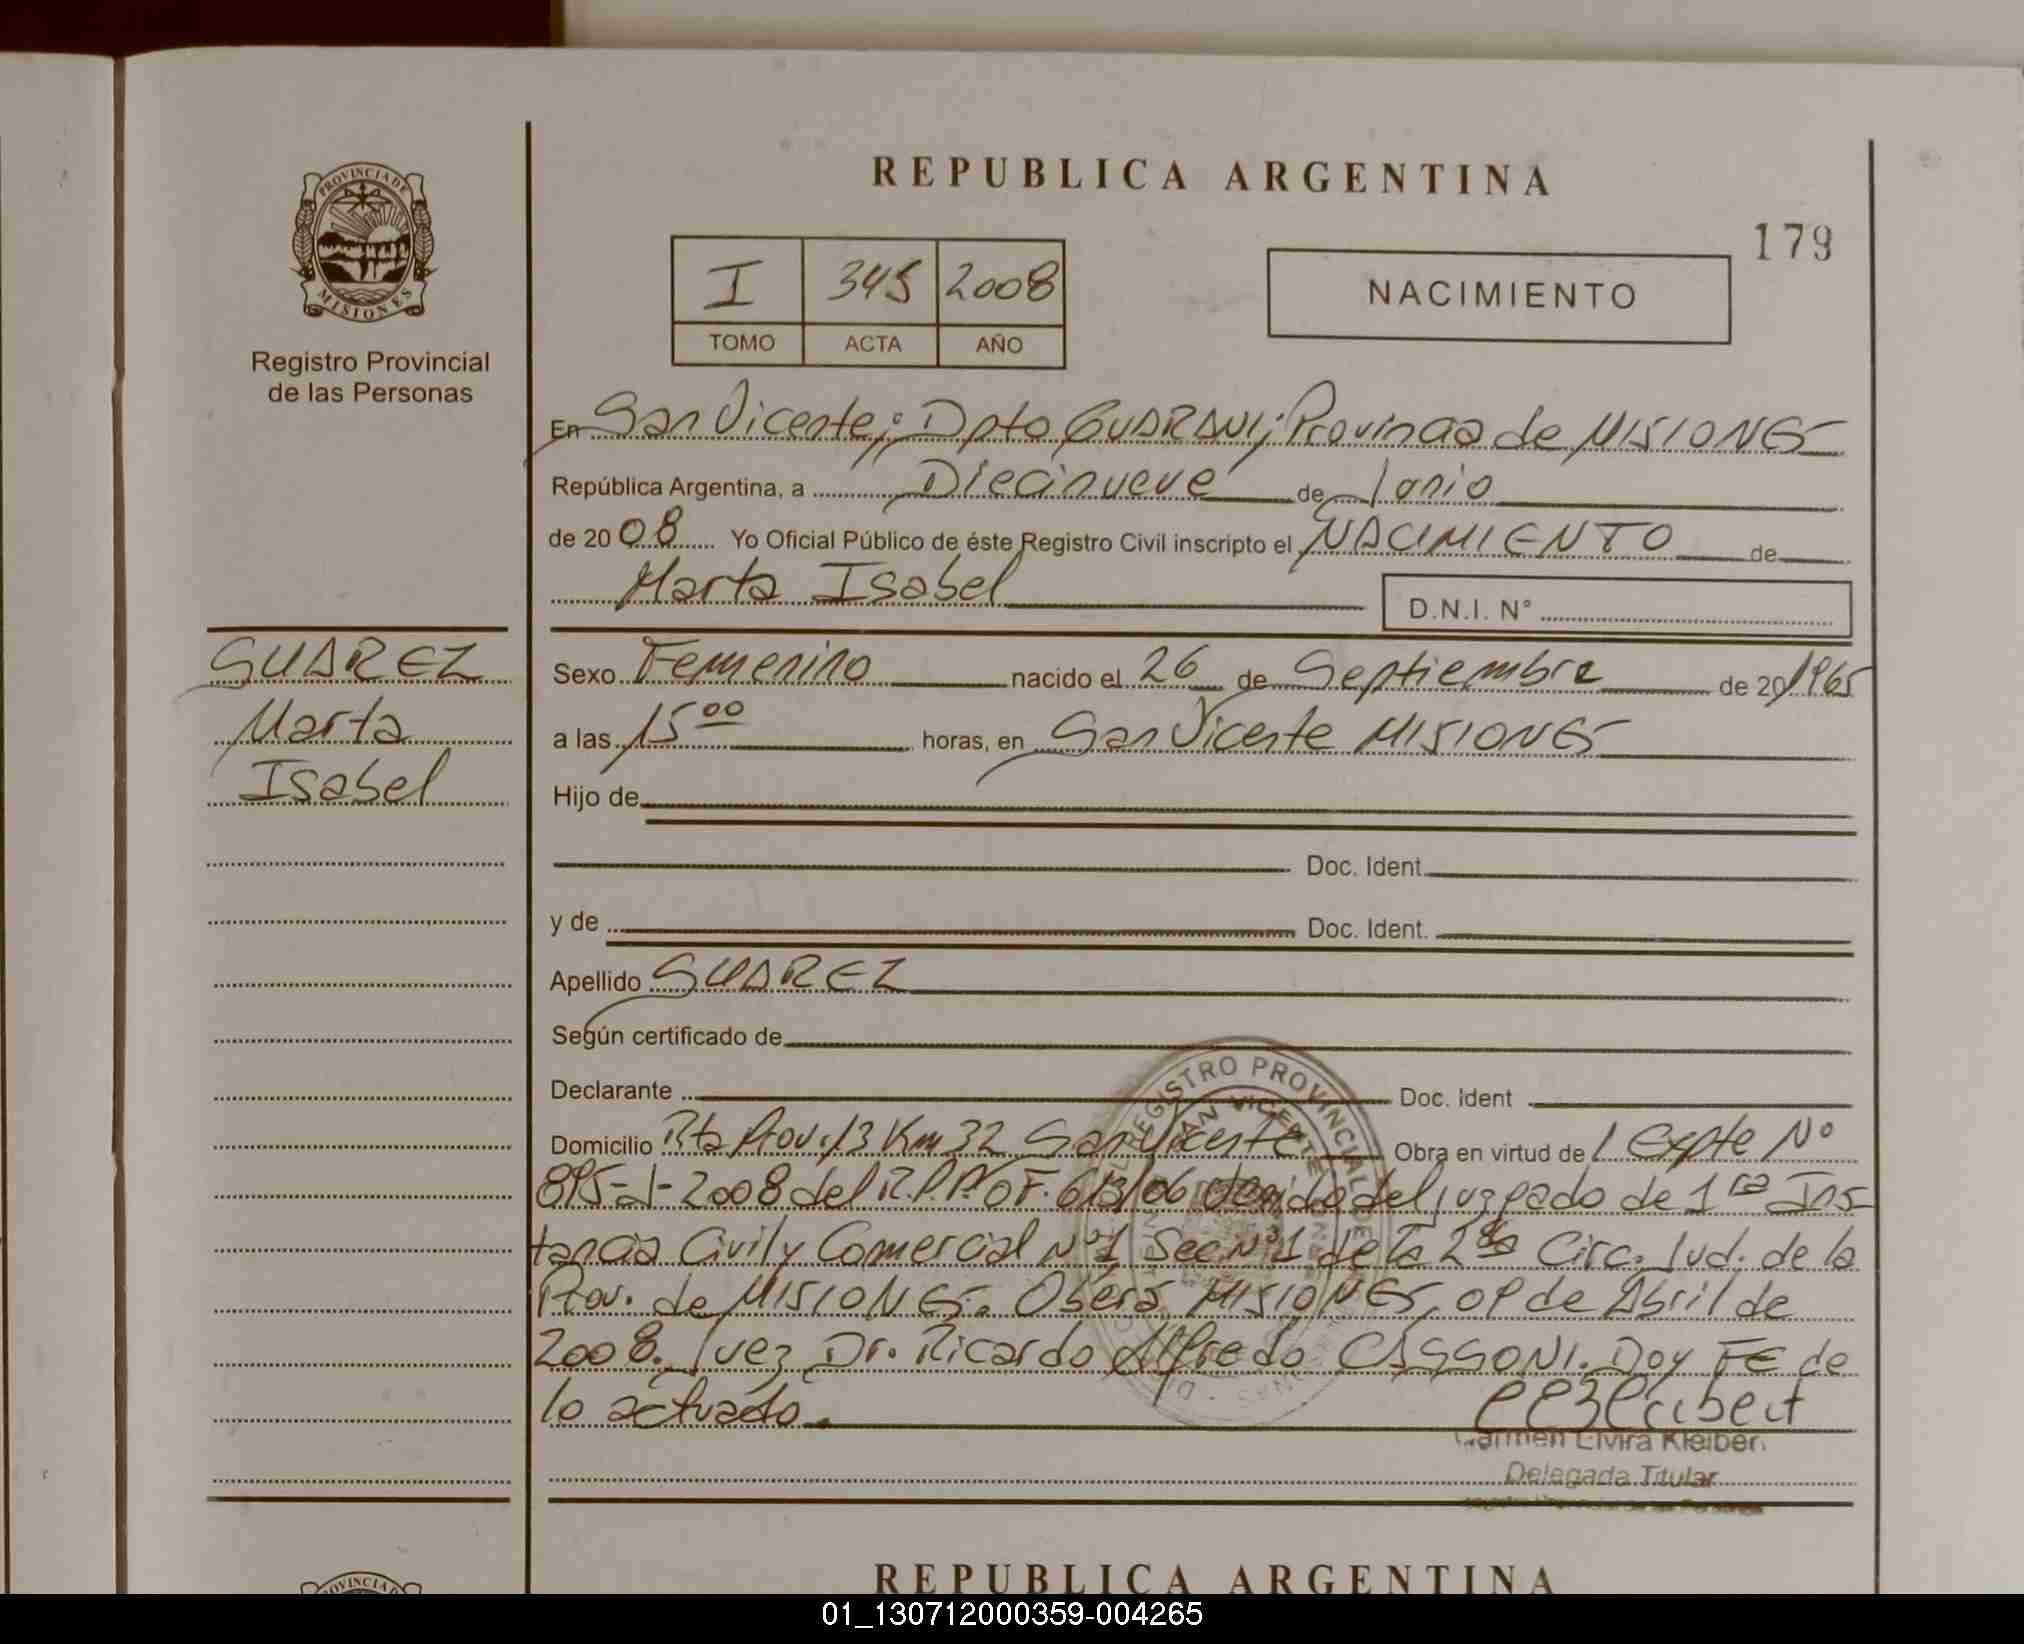 REPUBLICA ARGENTINA
179
PROVINCIA DE
MISIONES
Registro Provincial
de las Personas
I 345 2008
TOMO ACTA AÑO
NACIMIENTO
En San Vicente; Dpto GUARANI; Provincia de MISIONES
República Argentina, a Diecinueve de Junio
de 2008 Yo Oficial Público de éste Registro Civil inscripto el NACIMIENTO de
Marta Isabel D.N.I. N°
SUAREZ
Marta
Isabel
Sexo Femenino nacido el 26 de Septiembre de 20 1965
a las 15 00 horas, en San Vicente MISIONES
Hijo de
Doc. Ident.
y de Doc. Ident.
Apellido SUAREZ
Según certificado de
Declarante Doc. Ident
Domicilio Rta Prov. 13 Km 32 San Vicente Obra en virtud de 1 Expte Nº
895-J-2008 del R.P.P. OF. 613/06 del juzgado de 1ra Ins-
tancia Civil y Comercial Nº1 Sec Nº1 de la 2da Circ. Jud. de la
Prov. de MISIONES. Oberá, MISIONES, 09 de Abril de
2008. Juez Dr. Ricardo Alfredo CASSONI. Doy FE de
lo actuado.
REGISTRO PROVINCIAL DE
SAN VICENTE
Carmen Elvira Kleiber
Delegada Titular
REPUBLICA ARGENTINA
01_130712000359-004265